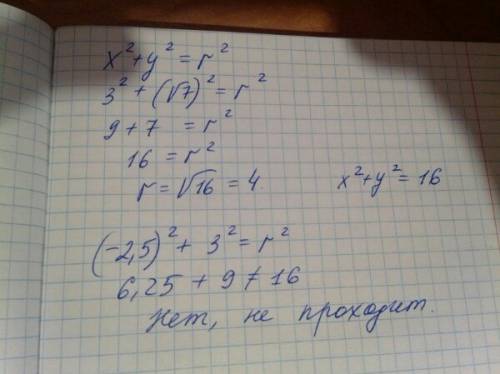 x² + y² = r²
3² + (√7)² = r²
9 + 7 = r²
16 = r²
r = √16 = 4 x² + y² = 16
(-2,5)² + 3² = r²
6,25 + 9 ≠ 16
Нет, не проходит.